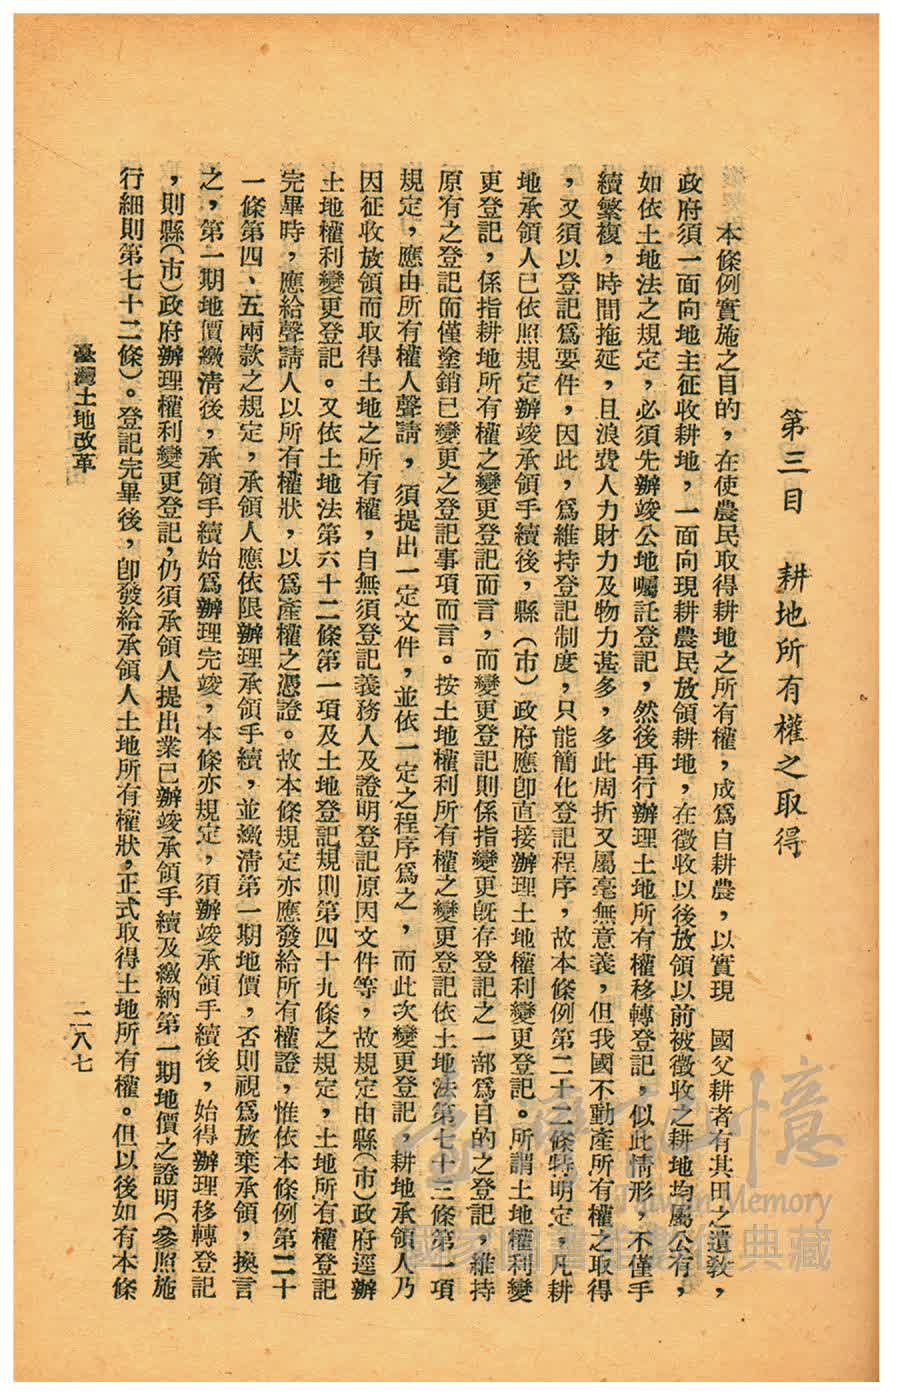 第三目　耕地所有權之取得
本條例實施之目的，在使農民取得耕地之所有權，成爲自耕農，以實現　國父耕者有其田之遺敎，
政府須一面向地主征收耕地，一面向現耕農民放領耕地，在徵收以後放領以前被徵收之耕地均屬公有，
如依土地法之規定，必須先辦竣公地囑託登記，然後再行辦理土地所有權移轉登記，似此情形，不僅手
續繁複，時間拖延，且浪費人力財力及物力甚多，多此周折又屬毫無意義，但我國不動產所有權之取得
，又須以登記爲要件，因此，爲維持登記制度，只能簡化登記程序，故本條例第二十二條特明定，凡耕
地承領人已依照規定辦竣承領手續後，縣（市）政府應卽直接辦理土地權利變更登記。所謂土地權利變
更登記，係指耕地所有權之變更登記而言，而變更登記則係指變更旣存登記之一部爲目的之登記，維持
原有之登記而僅塗銷已變更之登記事項而言。按土地權利所有權之變更登記依土地法第七十三條第一項
規定，應由所有權人聲請，須提出一定文件，並依一定之程序爲之，而此次變更登記，耕地承領人乃
因征收放領而取得土地之所有權，自無須登記義務人及證明登記原因文件等，故規定由縣（市）政府逕辦
土地權利變更登記。又依土地法第六十二條第一項及土地登記規則第四十九條之規定，土地所有權登記
完畢時，應給聲請人以所有權狀，以爲產權之憑證。故本條規定亦應發給所有權證，惟依本條例第二十
一條第四、五兩款之規定，承領人應依限辦理承領手續，並繳清第一期地價，否則視爲放棄承領，換言
之，第一期地價繳清後，承領手續始爲辦理完竣，本條亦規定，須辦竣承領手續後，始得辦理移轉登記
，則縣（市）政府辦理權利變更登記，仍須承領人提出業已辦竣承領手續及繳納第一期地價之證明（參照施
行細則第七十二條）。登記完畢後，卽發給承領人土地所有權狀，正式取得土地所有權。但以後如有本條
臺灣土地改革
二八七
臺灣記憶
Taiwan Memory
國家圖書館數位典藏